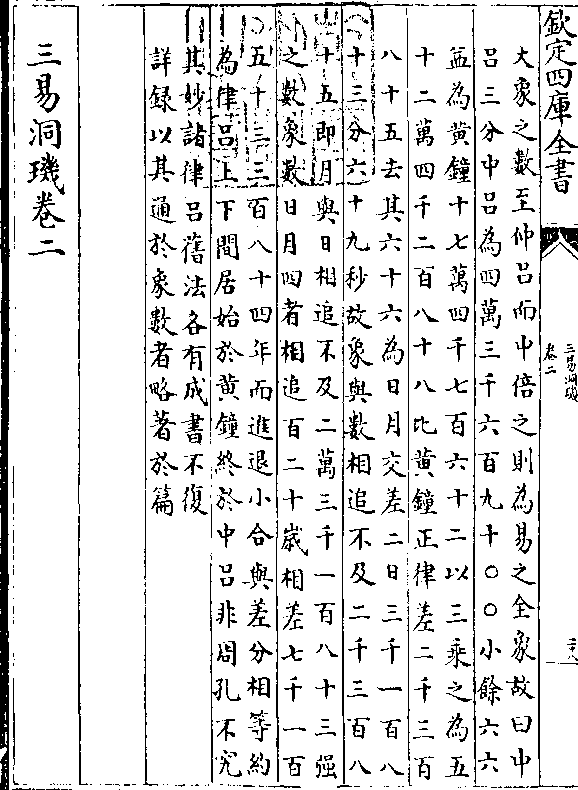 欽定四庫全書
三易洞璣
卷二
大象之數至仲呂而中倍之則為易之全象故曰中
呂三分中呂為四萬三千六百九十〇〇小餘六六
益為黄鐘十七萬四千七百六十二以三乘之為五
十二萬四千二百八十八比黄鐘正律差二千三百
八十五去其六十六為日月交差二日三千一百八
十三分六十九秒故象與數相追不及二千三百八
十五即月與日相追不及二萬三千一百八十三强
之數象數日月四者相追百二十歲相差七千一百
五十三三百八十四年而進退小合與差分相等約
為律呂上下間居始於黄鐘終於中呂非周孔不究
其妙諸律呂舊法各有成書不復
詳録以其通於象數者略著於篇
三易洞璣卷二